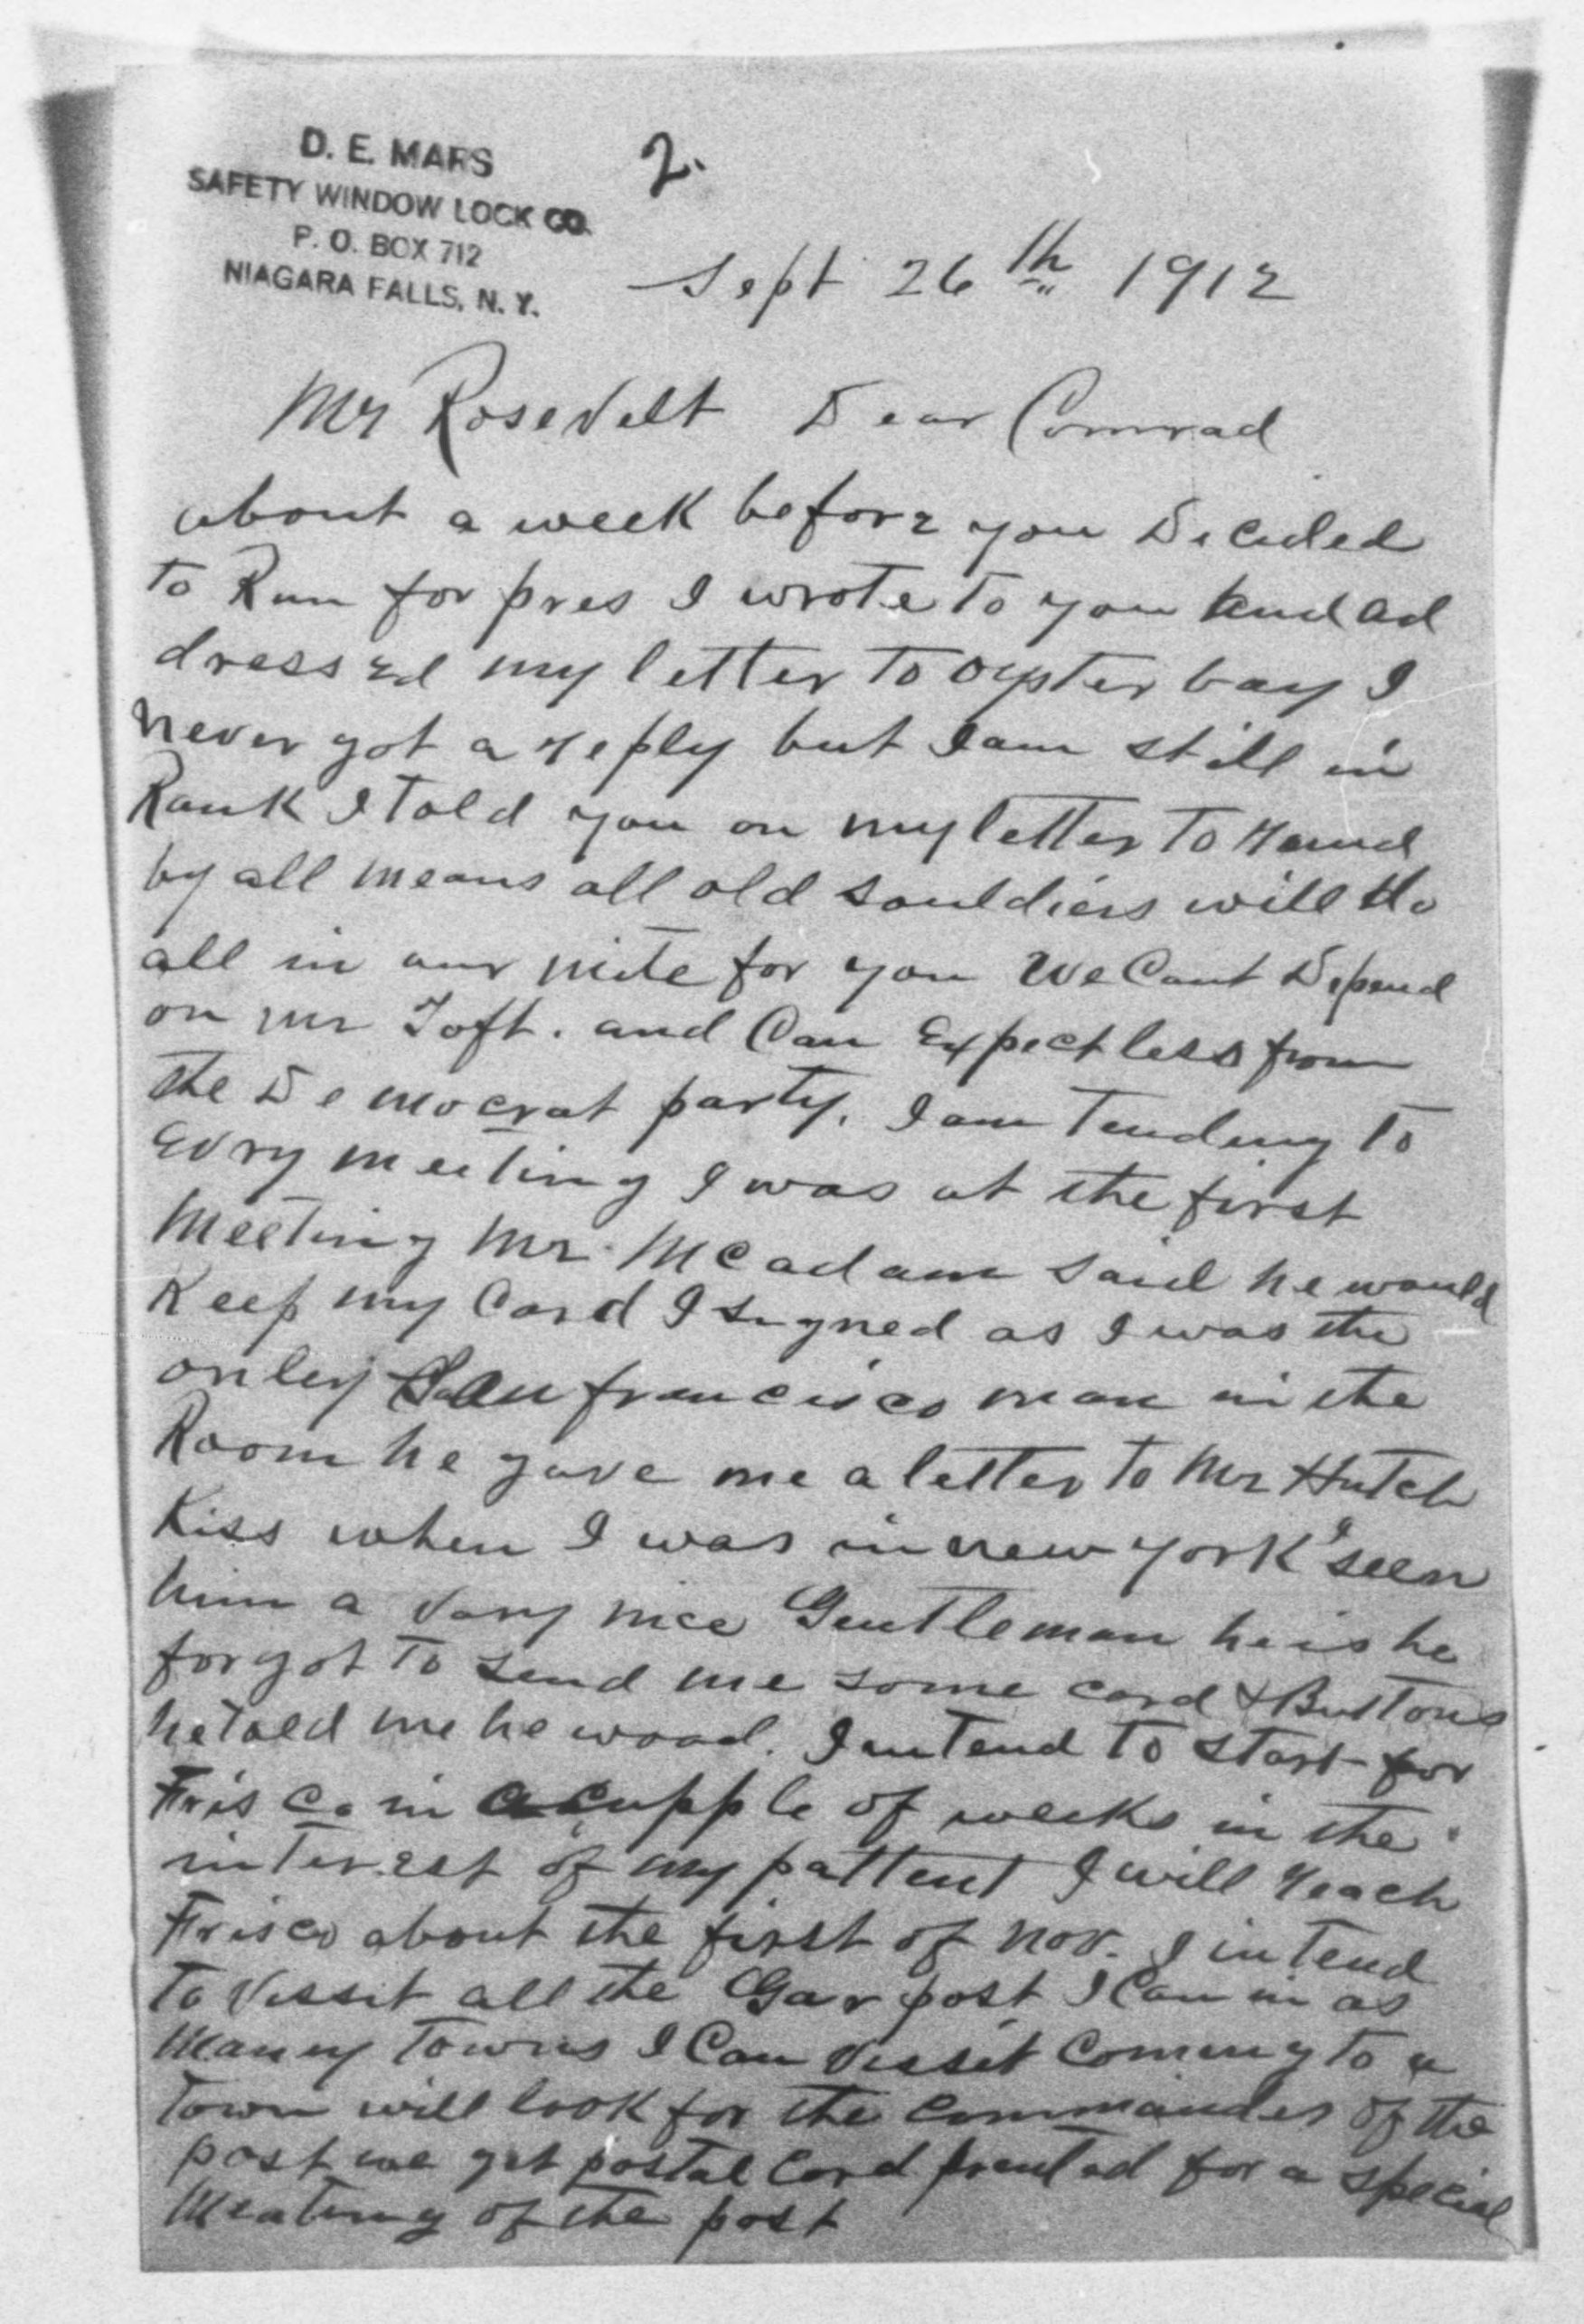 D. E. MARS
SAFETY WINDOW LOCK CO.
P. O. BOX 712
NIAGARA FALLS, N. Y.
2.
Sept 26th 1912
Mr Rosevelt Dear Comrad
about a week before you Decided
to Run for pres I wrote to you and ad
dressed my letter to oyster bay I
never got a reply but I am still in
Rank I told you on my letter to
by all means all old souldiers will do
all in our mite for you We Cant Depend
on mr Toft. and Can Expect less from
the Democrat party. I am Tending to
Evry meeting I was at the first
Meeting Mr. Mcadam said he would
Keep my Card I signed as I was the
onley San francisco man in the
Room he gave me a letter to Mr Hutch
Kiss when I was in new york I seen
him a vary nice Gentleman he is he
forgot to send me some card & Buttons
he told me he woad. I intend to start for
Frisco in a cupple of weeks in the
interest of my pattent I will reach
Frisco about the first of nov. I intend
to vissit all the Gar post I Can in as
maney Towns I Can vissit Coming to a
Town will look for the commander of the
post we get postal Card prented for a special
Meating of the post